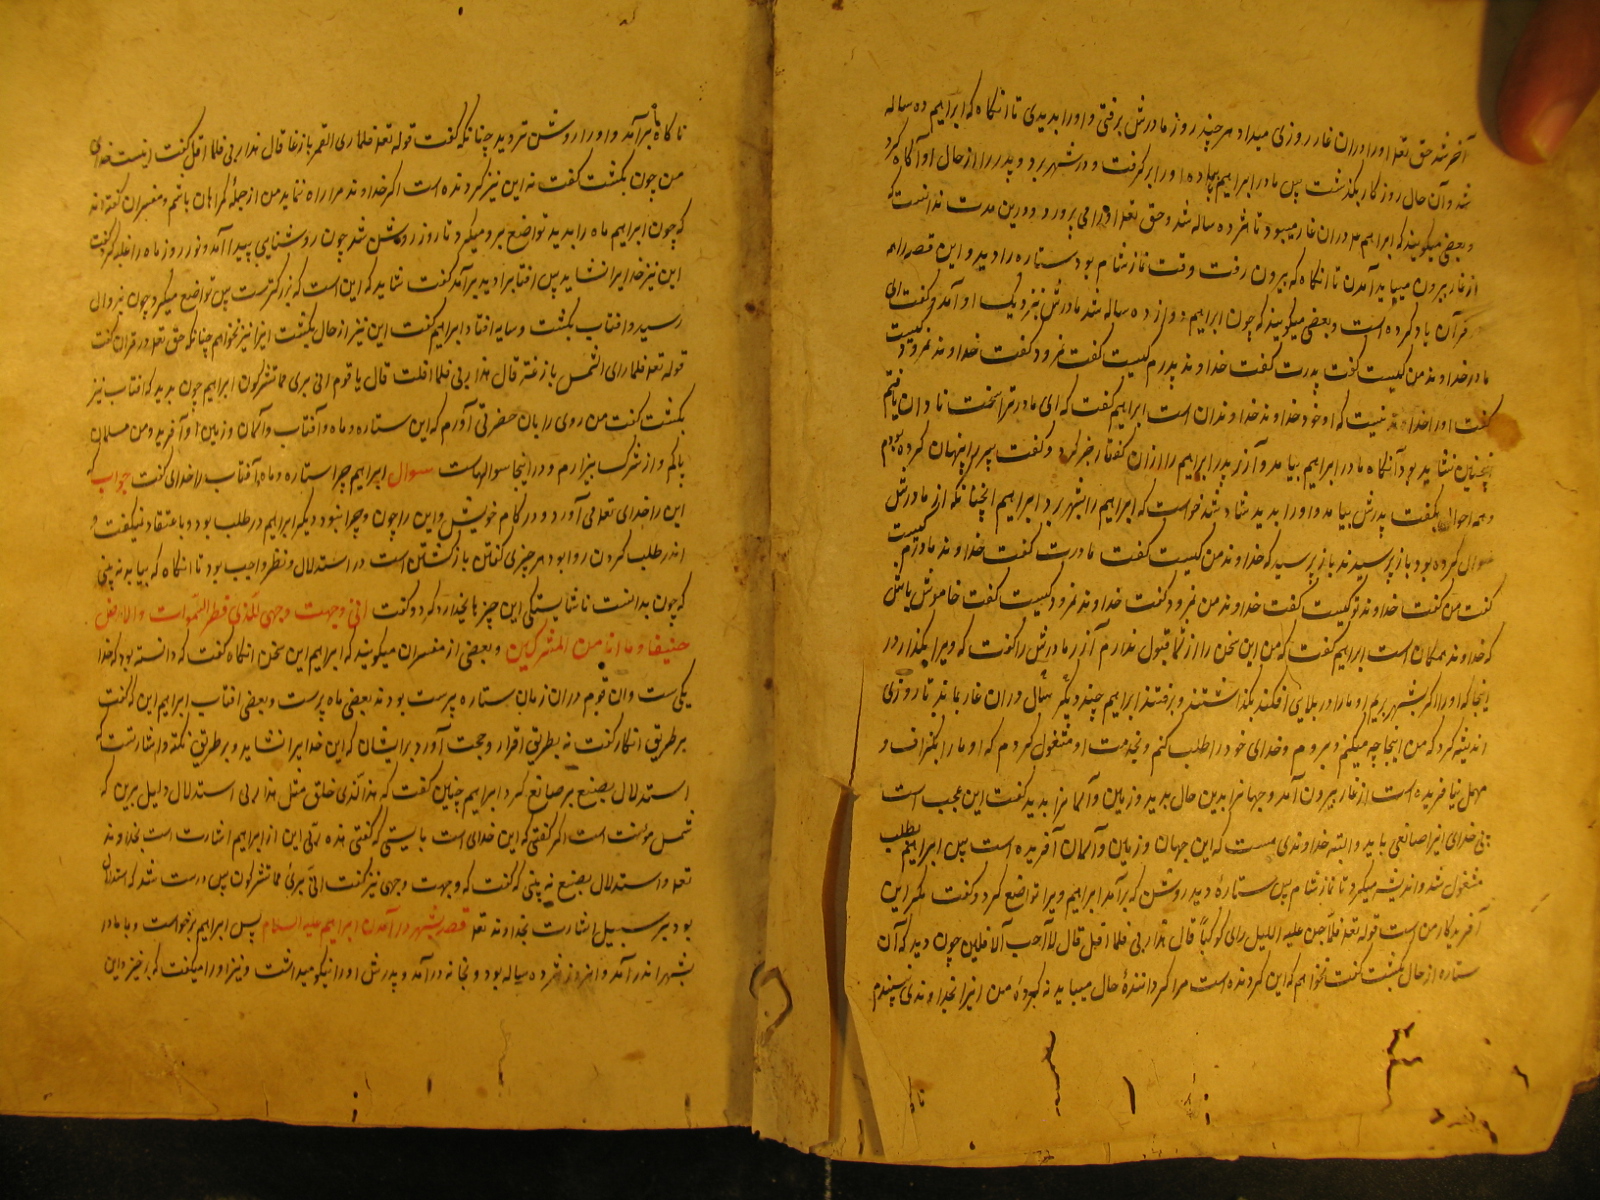 آخر شد حق تعالی اورا دران غار روزی میداد هر چند روز مادرش برفتی و اورا بدیدی تا انگاه که ابراهیم ده ساله
شد و آن حال روزگار بگذشت پس مادر ابراهیم بیامد اورا بر گرفت و در شهر برد و پدر را از حال او آگاه کرد
و بعضی میگویند که ابراهیم دران غار میبود تا هژده ساله شد و حق تعالی اورا می پرورد و درین مدت ندانست که
از غار بیرون میباید آمدن تا انگاه که بیرون رفت وقت نماز شام بود ستاره را دید و این قصه را هم
در قرآن یاد کرده است و بعضی میگویند که چون ابراهیم دوازده ساله شد مادرش نزدیک او آمد و گفت ای
مادر خداوند من کیست گفت پدرت گفت خداوند پدرم کیست گفت نمرود گفت خداوند نمرود کیست
گفت اورا خداوند نیست که او خود خداوند خداوندان است ابراهیم گفت که ای مادر ترا سخت نادان یافتم
اینچنین نشاید بود آنگاه مادر ابراهیم بیامد و آزر پدر ابراهیم را ازان گفتار خبر کرد و گفت پسر را پنهان کرده بودم
و همه احوال بگفت پدرش بیامد و اورا بدید شاد شد خواست که ابراهیم را بشهر برد ابراهیم آنچنانکه از مادرش
سوال کرده بود باز پرسید که خداوند من کیست گفت مادرت گفت خداوند مادرم کیست
گفت من گفت خداوند تو کیست گفت خداوند من نمرود گفت خداوند نمرود کیست گفت خاموش باش
که خداوند همگان است ابراهیم گفت که من این سخن را از شما قبول ندارم آزر مادرش را گفت که ویرا بگذار در
اینجا که اورا اگر بشهر بریم او مارا در بلایی افکند بگذاشتند و برفتند ابراهیم چند دیگر سال دران غار بماند تا روزی
اندیشه کرد که من اینجا چه میکنم و بروم و خدای خود را طلب کنم و بخدمت او مشغول کردم که او مارا بگزاف و
مهمل نیافریده است از غار بیرون آمد و جهانرا بدین حال بدید و زمین و آسمانرا بدید گفت این عجب است
خدای اینرا صانعی باید و البته خداوندی هست که این جهان و زمین و آسمان آفریده است پس ابراهیم بطلب
مشغول شد و اندیشه میکرد تا نماز شام پس ستارۀ دید روشن که برآمد ابراهیم ویرا تواضع کرد و گفت مگر این
آفریدگار من است قوله تعالی فلما جن علیه اللیل رای کوکبا قال هذا ربی فلما افل قال لا احب الافلین چون دید که آن
ستاره از حال بگشت گفت نخواهم که این کردنده است مرا گردانندۀ حال میباید نه گردۀ من اینرا بخداوندی نپسندم
تا کا
ناگاه ماه برآمد و اورا روشن تر دید چنانکه گفت قوله تعالی فلما رای القمر بازغا قال هذا ربی فلما افل گفت اینست خدای
من چون بگشت گفت نه این نیز گردنده است اگر خداوند مرا راه ننماید من از جمله گمراهان باشم و مفسران گفته اند
که چون ابراهیم ماه را بدید تواضع ببرد میکرد تا روز روشن شد چون روشنایی پیدا آمد و نور روز ماه را غلبه کرد گفت
این نیز خدایرا نشاید پس افتابرا دید برآمد گفت شاید که این است که بزرگترست پس تواضع میکرد چون بزوال
رسید و افتاب بگشت و سایه افتاد ابراهیم گفت این نیز از حال بگشت اینرا نیز نخواهم چنانکه حق تعالی در قران گفت
قوله تعالی فلما رای الشمس بازغة قال هذا ربی فلما افلت قال یا قوم انی بری مما تشرکون ابراهیم چون بدید که افتاب نیز
بگشت گفت من روی را بدان حضرتی آورم که این ستاره و ماه و آفتاب و آسمان و زمین او آفرید و من مسلمان
پاکم و از شرک بیزارم و در اینجا سوالهاست سوال ابراهیم چرا ستاره و ماه و آفتاب را خدای گفت جواب که
این را خدای تعالی می آورد و در کام خویش و این را چون و چرا نبود و دیگر ابراهیم در طلب بود و باعتقاد نمیگفت و
اندر طلب کردن روا بود هر چیزی گفتن بازگشتن است در استدلال و نظر واجب بود تا انگاه که بیابد نه بینی
که چون بدانست ناشایستگی این چیزها بخداوندی رد کرد و گفت انی وجهت وجهی للذی فطر السموات والارض
حنیفا و ما انا من المشرکین و بعضی از مفسران میگویند که ابراهیم این سخن انگاه گفت که دانسته بود که خدا
یکی ست و ان قوم دران زمان ستاره پرست بودند بعضی ماه پرست و بعضی افتاب ابراهیم این که گفت
بر طریق انکار گفت نه بطریق اقرار و حجت آورد بر ایشان که این خدایرا نشاید و بر طریق نکته و اشارتست که
استدلال بصنع بر صانع کرد ابراهیم چنین گفت که هذا الذی خلق مثل هذا ربی استدلال دلیل برین که
شمس مؤنث است اگر گفتی که این خدای است بایستی که گفتی هذه ربی این از ابراهیم اشارت است بخداوند
تعالی و استدلال بصنع نه بینی که گفت که وجهت وجهی نیز گفت انی بریٔ مما تشرکون پس درست شد که استدلال
بود بر سبیل اشارت بخداوند تعالی قصه بشهر در آمدن ابراهیم علیه السلام پس ابراهیم برخواست و با مادر
بشهر اندر آمد و امروز هژده ساله بود و بخانه درآمد و پدرش اورا نیکو میداشت و نیز اورا میگفت که برخیز و این